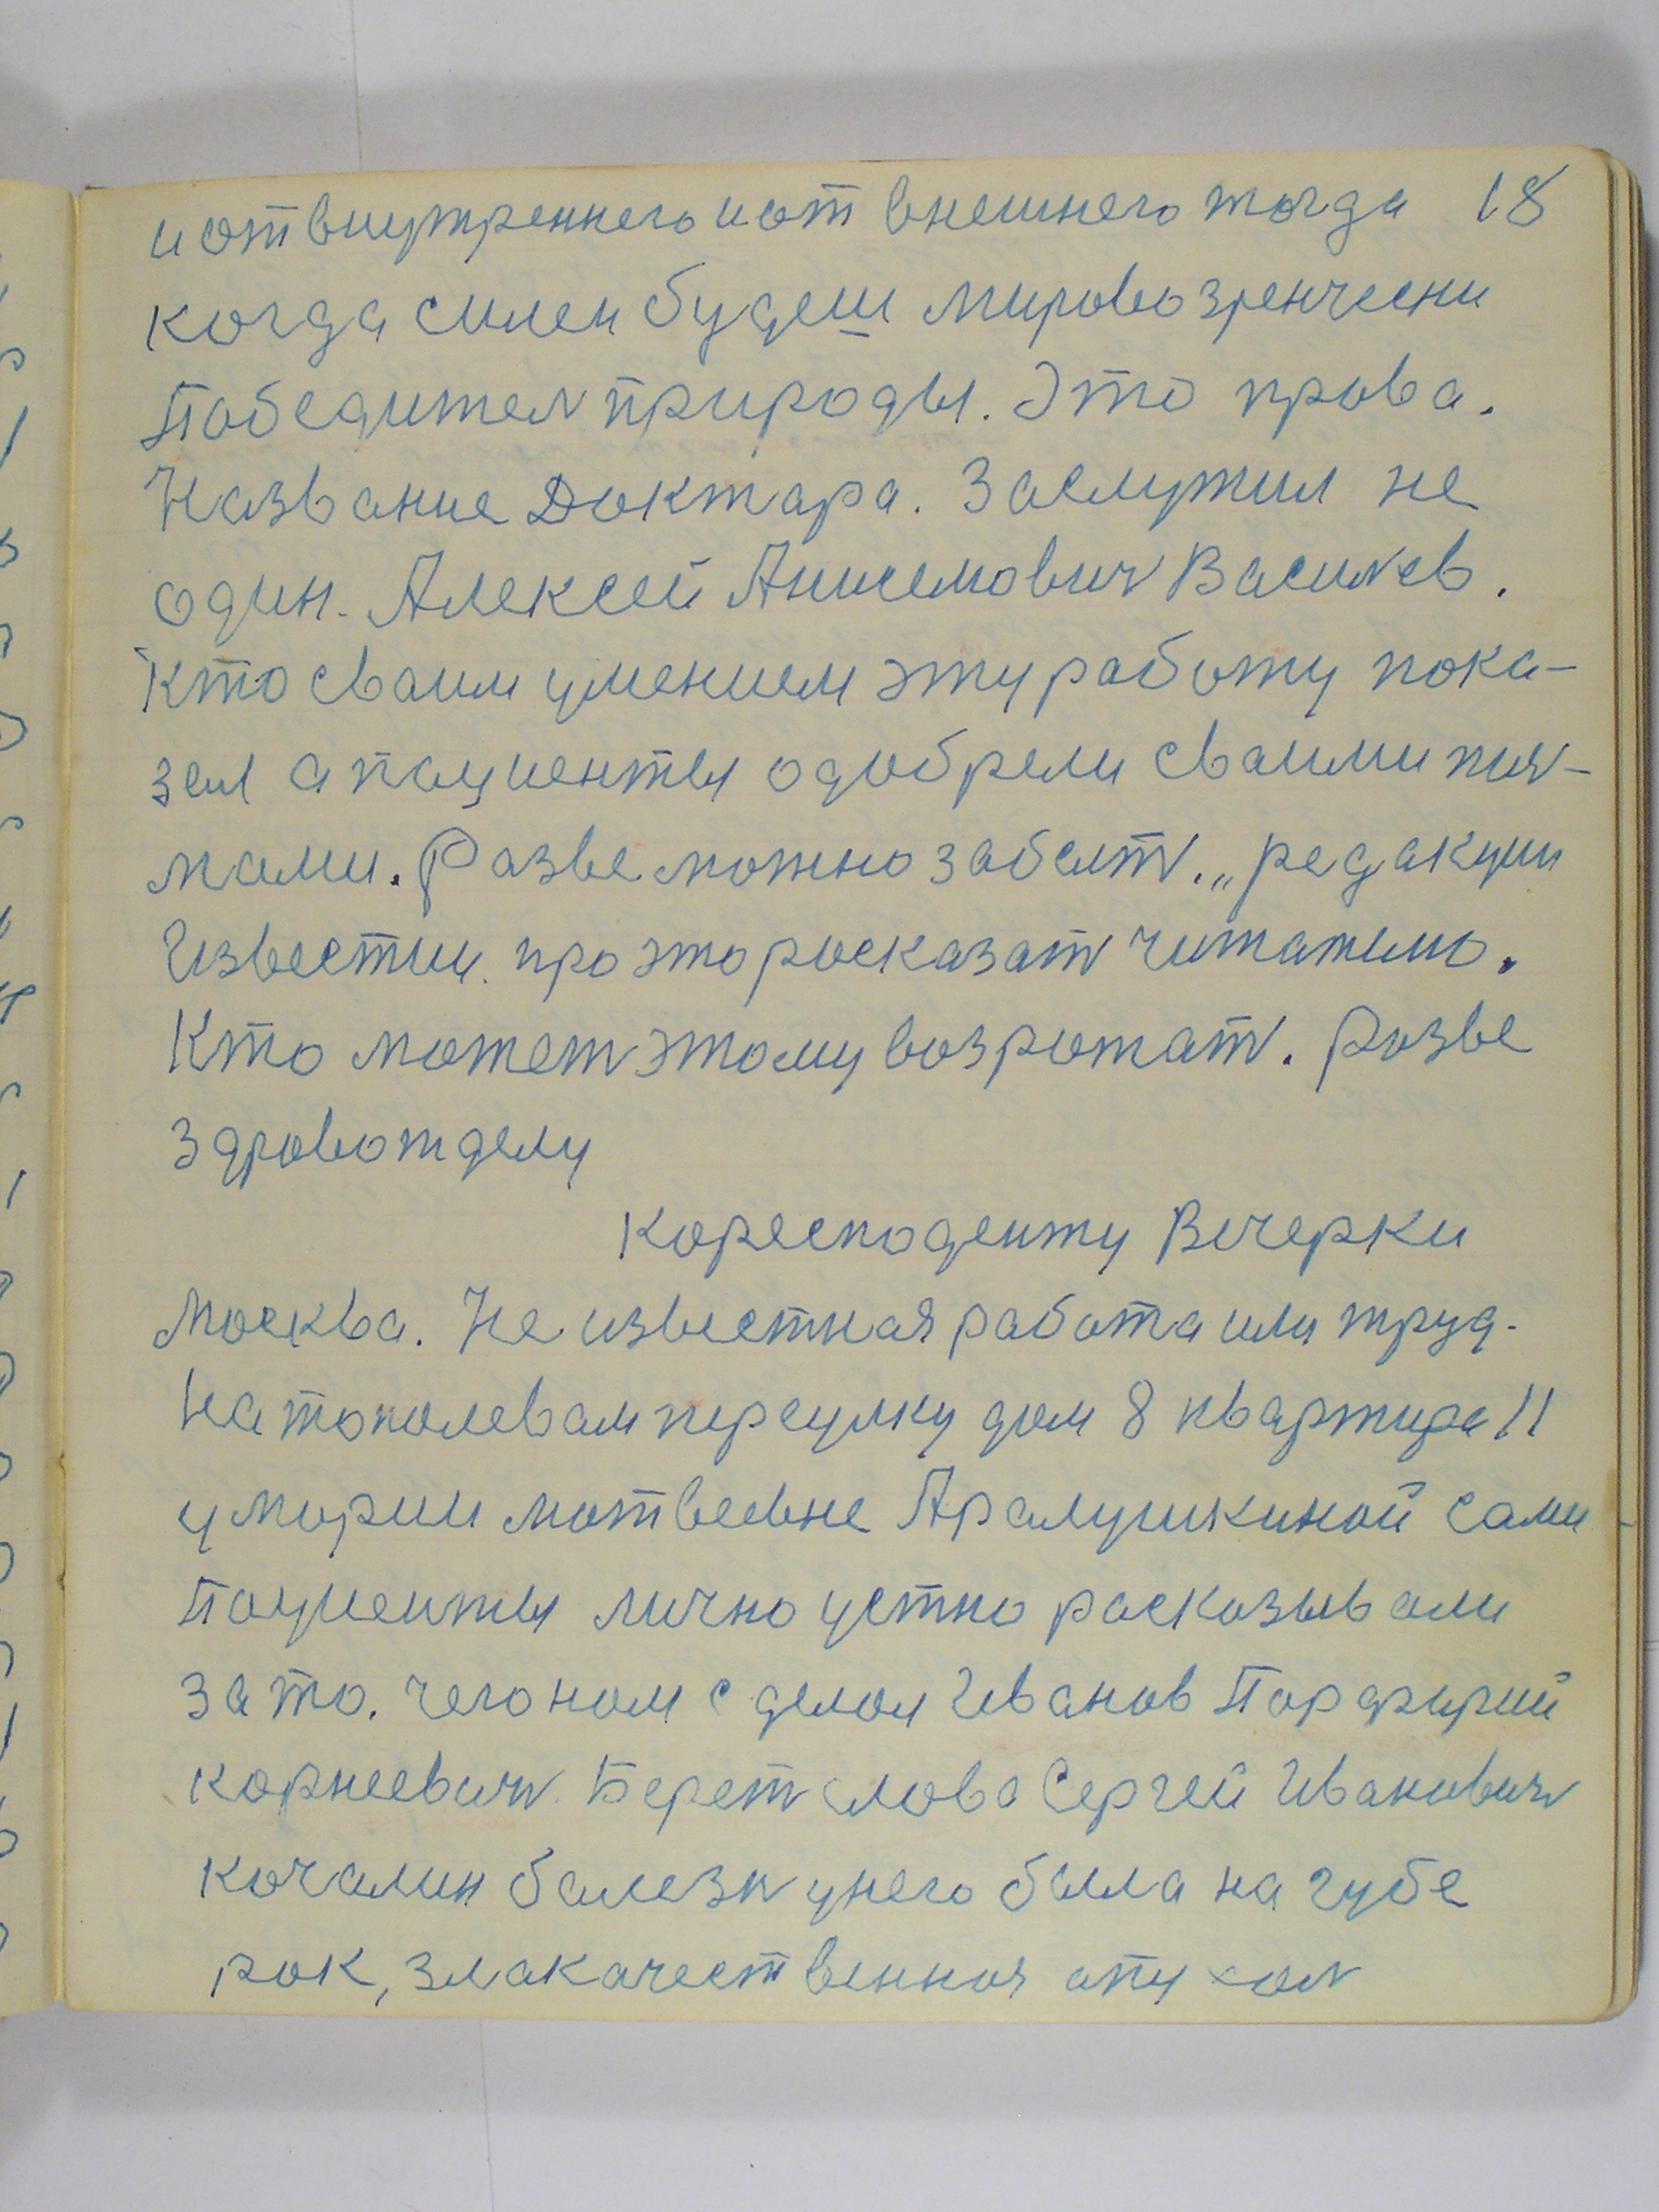 и от внутреннего и от внешнего тогда 18
когда силен будеш мировозренчески
Победител природы. Это прова.
Название Доктара. Заслужил не
один. Алексей Анисемович Василев.
Кто сваим умением эту работу пока-
зел а пациенты одобрели сваими пис-
мами. Разве можно забыт. „ редакции
Известии. про это росказат читателю.
Кто может этому возрожат. розве
здровотделу
коресподенту Вечерки
Москва. Не известная работа или труд.
На тополевам переулку дом 8 квартира 11
у Марии Мотвеевне Аралушкиной сами
Поциенты лично устно расказывали
за то. чего ном сделол Иванов Порфирий
корнеевич. Берет слово Сергей Иванович
кочалин балезн унего была на губе
рок, злакачественноя опухол